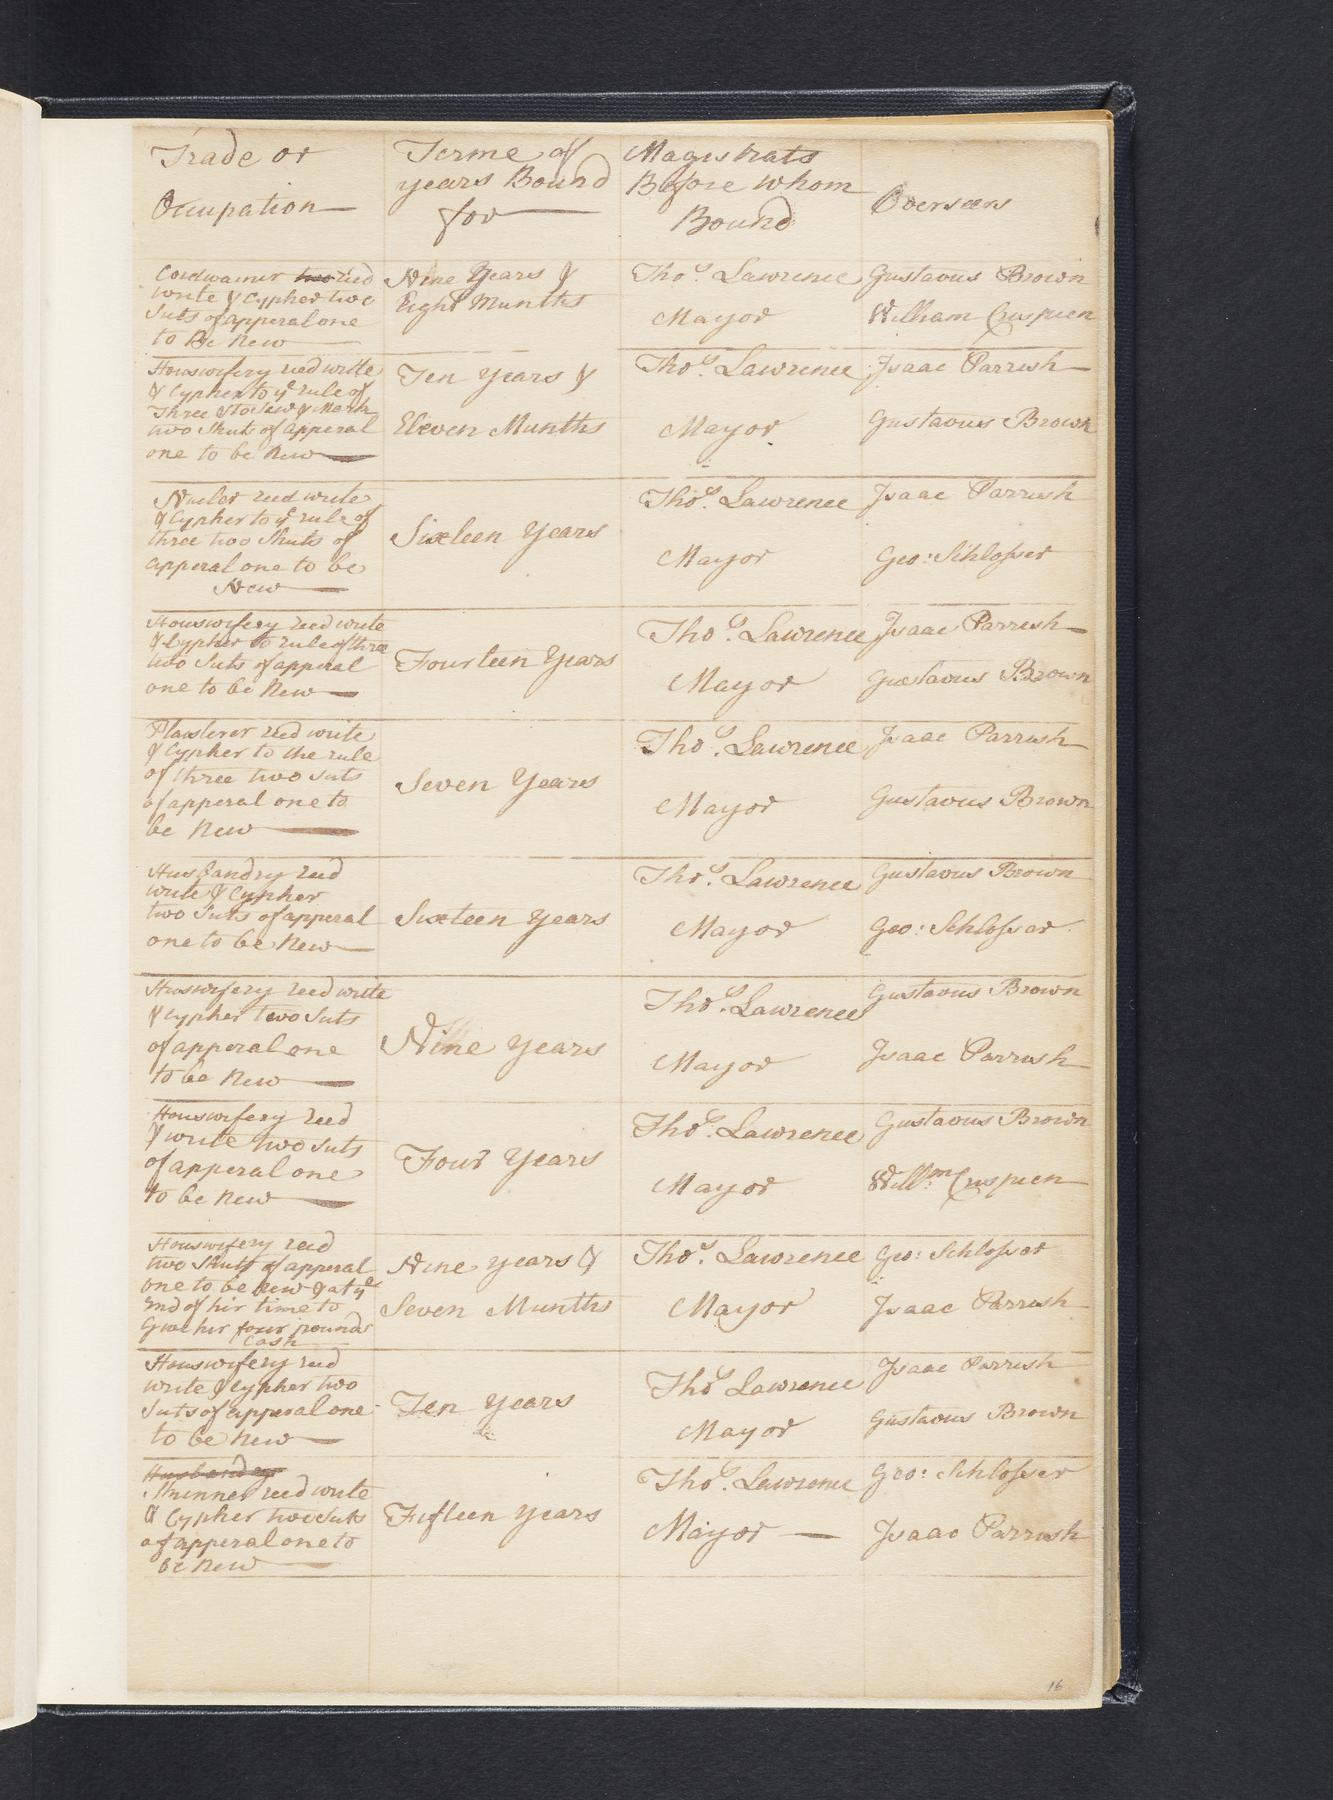 Trade or
Occupation
Terme of
years Bound
for
Magistrats
Before whom
Bound
Overseers
Cordwainer two reed
write & Cypher two
Suts of apperal one
to Be New
Nine Years &
Eight Munths
Thos. Lawrence
Mayor
Gustavus Brown
William Crispien
Houswifery reed write
& Cypher to ye rule of
Three & Mark
two Shuts of apperal
one to be New
Ten Years &
Eleven Munths
Thos. Lawrence
Mayor
Isaac Parrish
Gustavus Brown
Nailer reed write
& Cypher to ye rule of
three two Shuts of
apperal one to be
New
Sixteen Years
Thos. Lawrence
Mayor
Isaac Parrish
Geo: Schlosser
Houswifery reed write
& Cypher to rule of three
two Suts of apperal
one to be New
Fourteen Years
Thos. Lawrence
Mayor
Isaac Parrish
Gustavus Brown
Plasterer reed write
& Cypher to the rule
of three two suts
of apperal one to
be New
Seven Years
Thos. Lawrence
Mayor
Isaac Parrish
Gustavus Brown
Husbandry reed
write & Cypher
two Suts of apperal
one to be New
Sixteen Years
Thos. Lawrence
Mayor
Gustavus Brown
Geo: Schlosser
Huswifery reed write
& Cypher two Suts
of apperal one
to be New
Nine Years
Thos. Lawrence
Mayor
Gustavus Brown
Isaac Parrish
Houswifery reed
& write two Suts
of apperal one
to be New
Four Years
Thos. Lawrence
Mayor
Gustavus Brown
Willm. Crispien
Houswifery reed
two Shuts of apperal
one to be New & at ye
End of hir time to
Give hir four pounds
Cash
Nine Years &
Seven Munths
Thos. Lawrence
Mayor
Geo: Schlosser
Isaac Parrish
Houswifery reed
write & Cypher two
Suts of apperal one
to be New
Ten Years
Thos Lawrence
Mayor
Isaac Parrish
Gustavus Brown
Husbandry
Skinner reed write
& Cypher two Suts
of apperal one to
be New
Fifteen Years
Thos. Lawrence
Mayor
Geo: Schlosser
Isaac Parrish
16